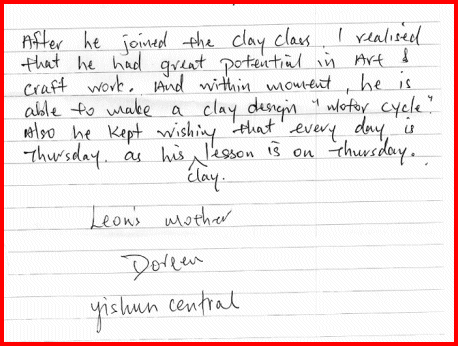 After he joined the clay class, I realised
that he had great potential in Art &
craft work. And within moment, he is
able to make a clay design "motor cycle".
Also he kept wishing that every day is
Thursday. as his lesson is on Thursday.
clay.
Leon's mother
Doreen
yishun central